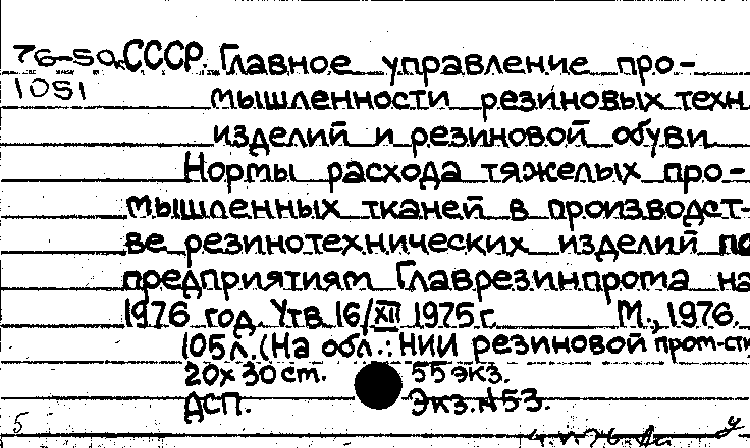 76-50 СССР. Главное управление про-
1051 мышленности резиновых техн
изделий и резиновой обуви
Нормы расхода тяжелых про-
мышленных тканей в производст-
ве резинотехнических изделий по
предприятиям Главрезинпрома на
1976 год. Утв. 16/XII 1975 г. М., 1976.
105 л. (На обл.: НИИ резиновой пром-сти
20х30 ст. 55 экз.
ДСП. Экз. №53.
5